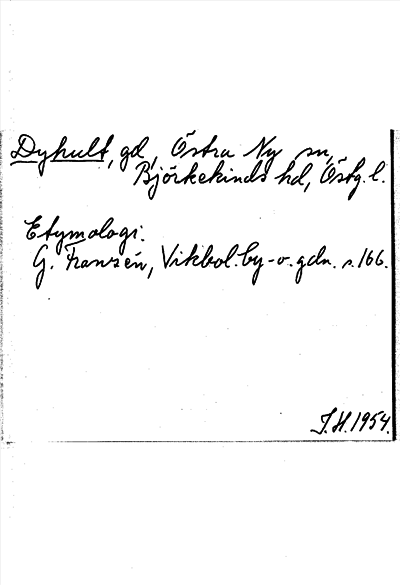 Dyhult, gd, Östra Ny sn,
Björkekinds hd, Östg. l.
Etymologi:
G. Franzén, Vikbol. by- o. gdn. s. 166.
J.H. 1954.